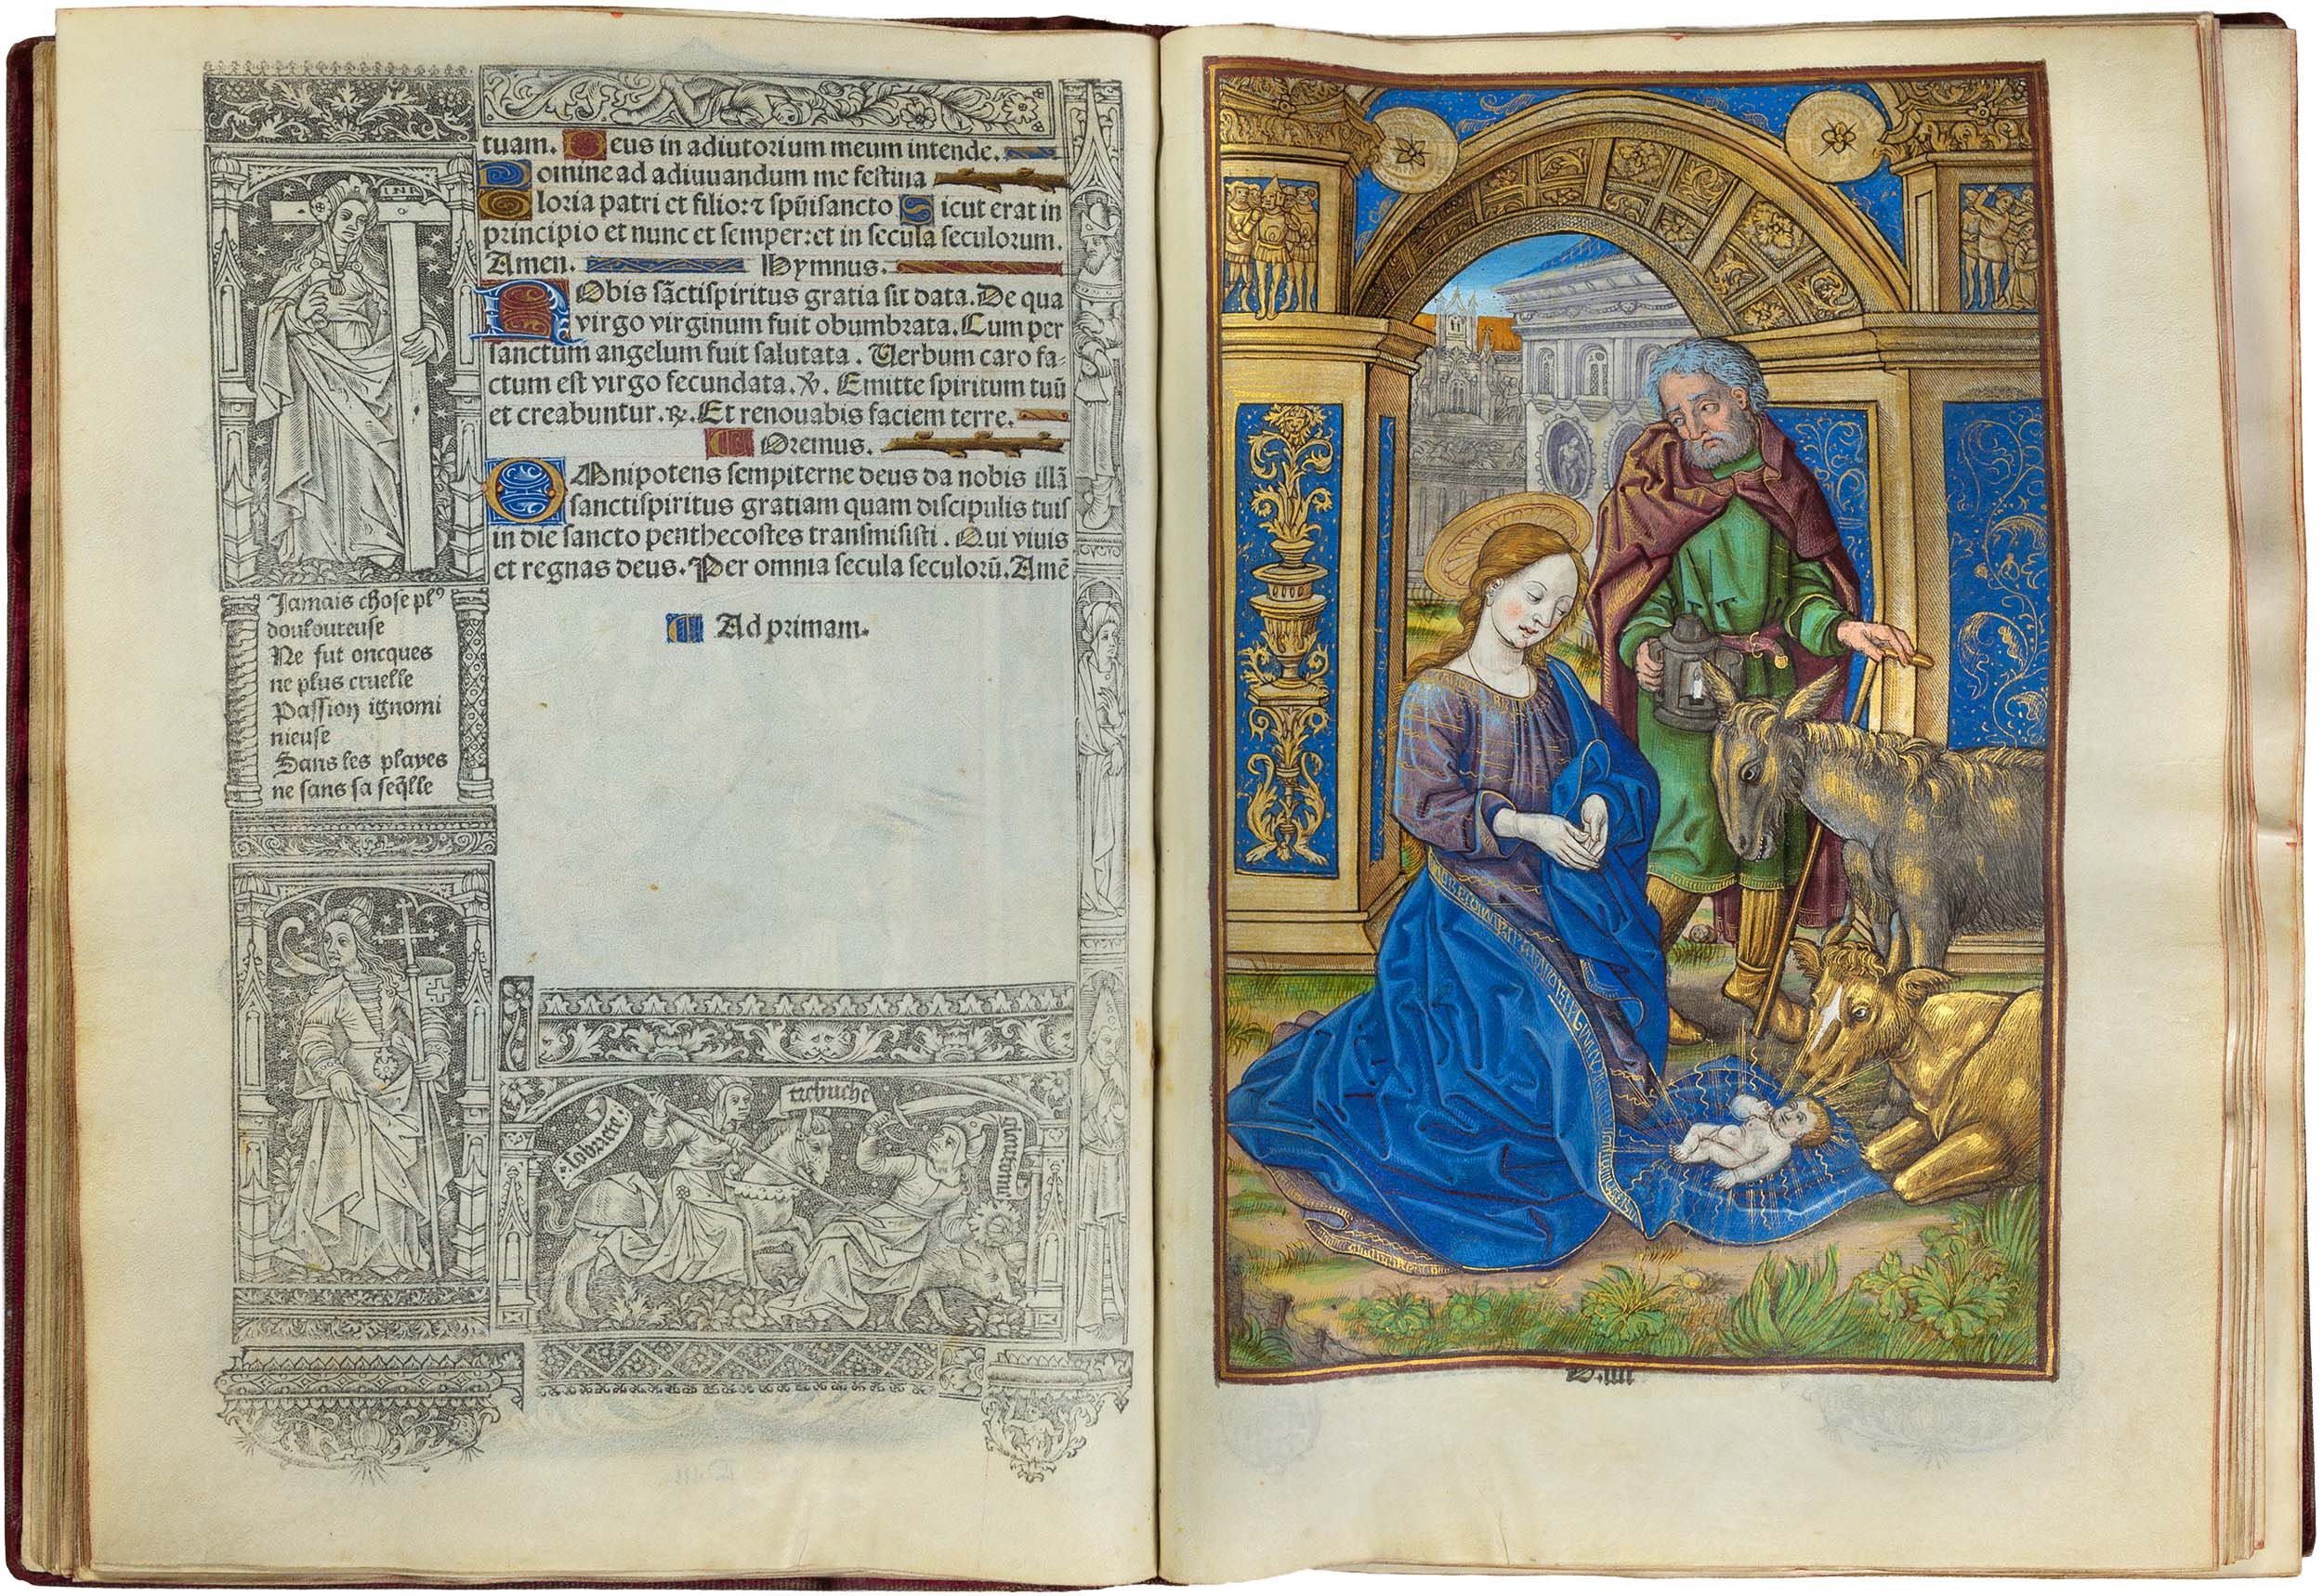 tuam. Deus in adiutorium meum intende.
Domine ad adiuuandum me festina
Gloria patri et filio:⁊ spūisancto Sicut erat in
principio et nunc et semper:et in secula seculorum.
Amen. Hymnus.
NObis sāctispiritus gratia sit data.De qua
virgo virginum fuit obumbrata.Cum per
sanctum angelum fuit salutata. Verbum caro fa-
ctum est virgo fecundata.℣. Emitte spiritum tuū
et creabuntur.℟.Et renouabis faciem terre.
Oremus.
OMnipotens sempiterne deus da nobis illā
sanctispiritus gratiam quam discipulis tuis
in die sancto penthecostes transmisisti.Qui viuis
et regnas deus.Per omnia secula seculorū.Amē
Ad primam.
INRI
Jamais chose plꝰ
douloureuse
Ne fut oncques
ne plus cruelle
Passion ignomi
nieuse
Sans les playes
ne sans sa seq̄lle
sobrete
trebuche
gloutonie